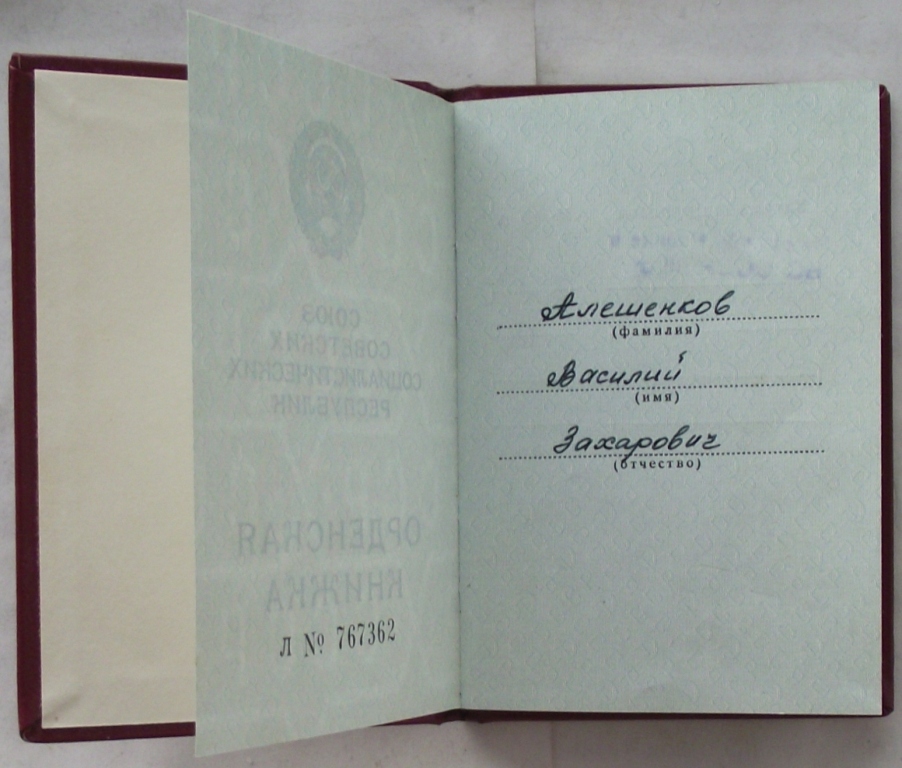 СОЮЗ
СОВЕТСКИХ
СОЦИАЛИСТИЧЕСКИХ
РЕСПУБЛИК
ОРДЕНСКАЯ
КНИЖКА
Л № 767362
Алешенков
(фамилия)
Василий
(имя)
Захарович
(отчество)